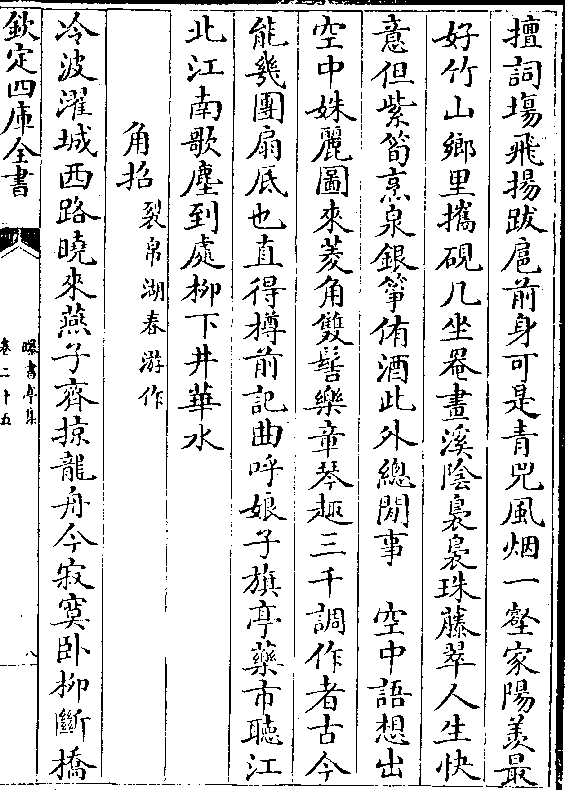 擅詞塲飛揚跋扈前身可是青兕風烟一壑家陽羨最
好竹山鄉里攜硯几坐罨畫溪陰裊裊珠藤翠人生快
意但紫筍烹泉銀箏侑酒此外總閒事　空中語想出
空中姝麗圖來菱角雙髻樂章琴趣三千調作者古今
能幾團扇底也直得樽前記曲呼娘子旗亭藥市聽江
北江南歌塵到處柳下井華水
角招裂帛湖春游作
冷波濯城西路曉來燕子齊掠龍舟今寂寞卧柳斷橋
欽定四庫全書
曝書亭集
卷二十五
八